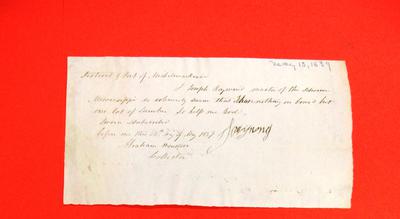 May 13, 1837
District & Port of Michilimackinac
I Joseph Hayward master of the Schooner
Mississippi do solemnly swear that I have nothing on board but
one lot of Lumber So help me God.
Sworn & subscribed
before me this 13th day of May 1837
Abraham Wendell
Collector